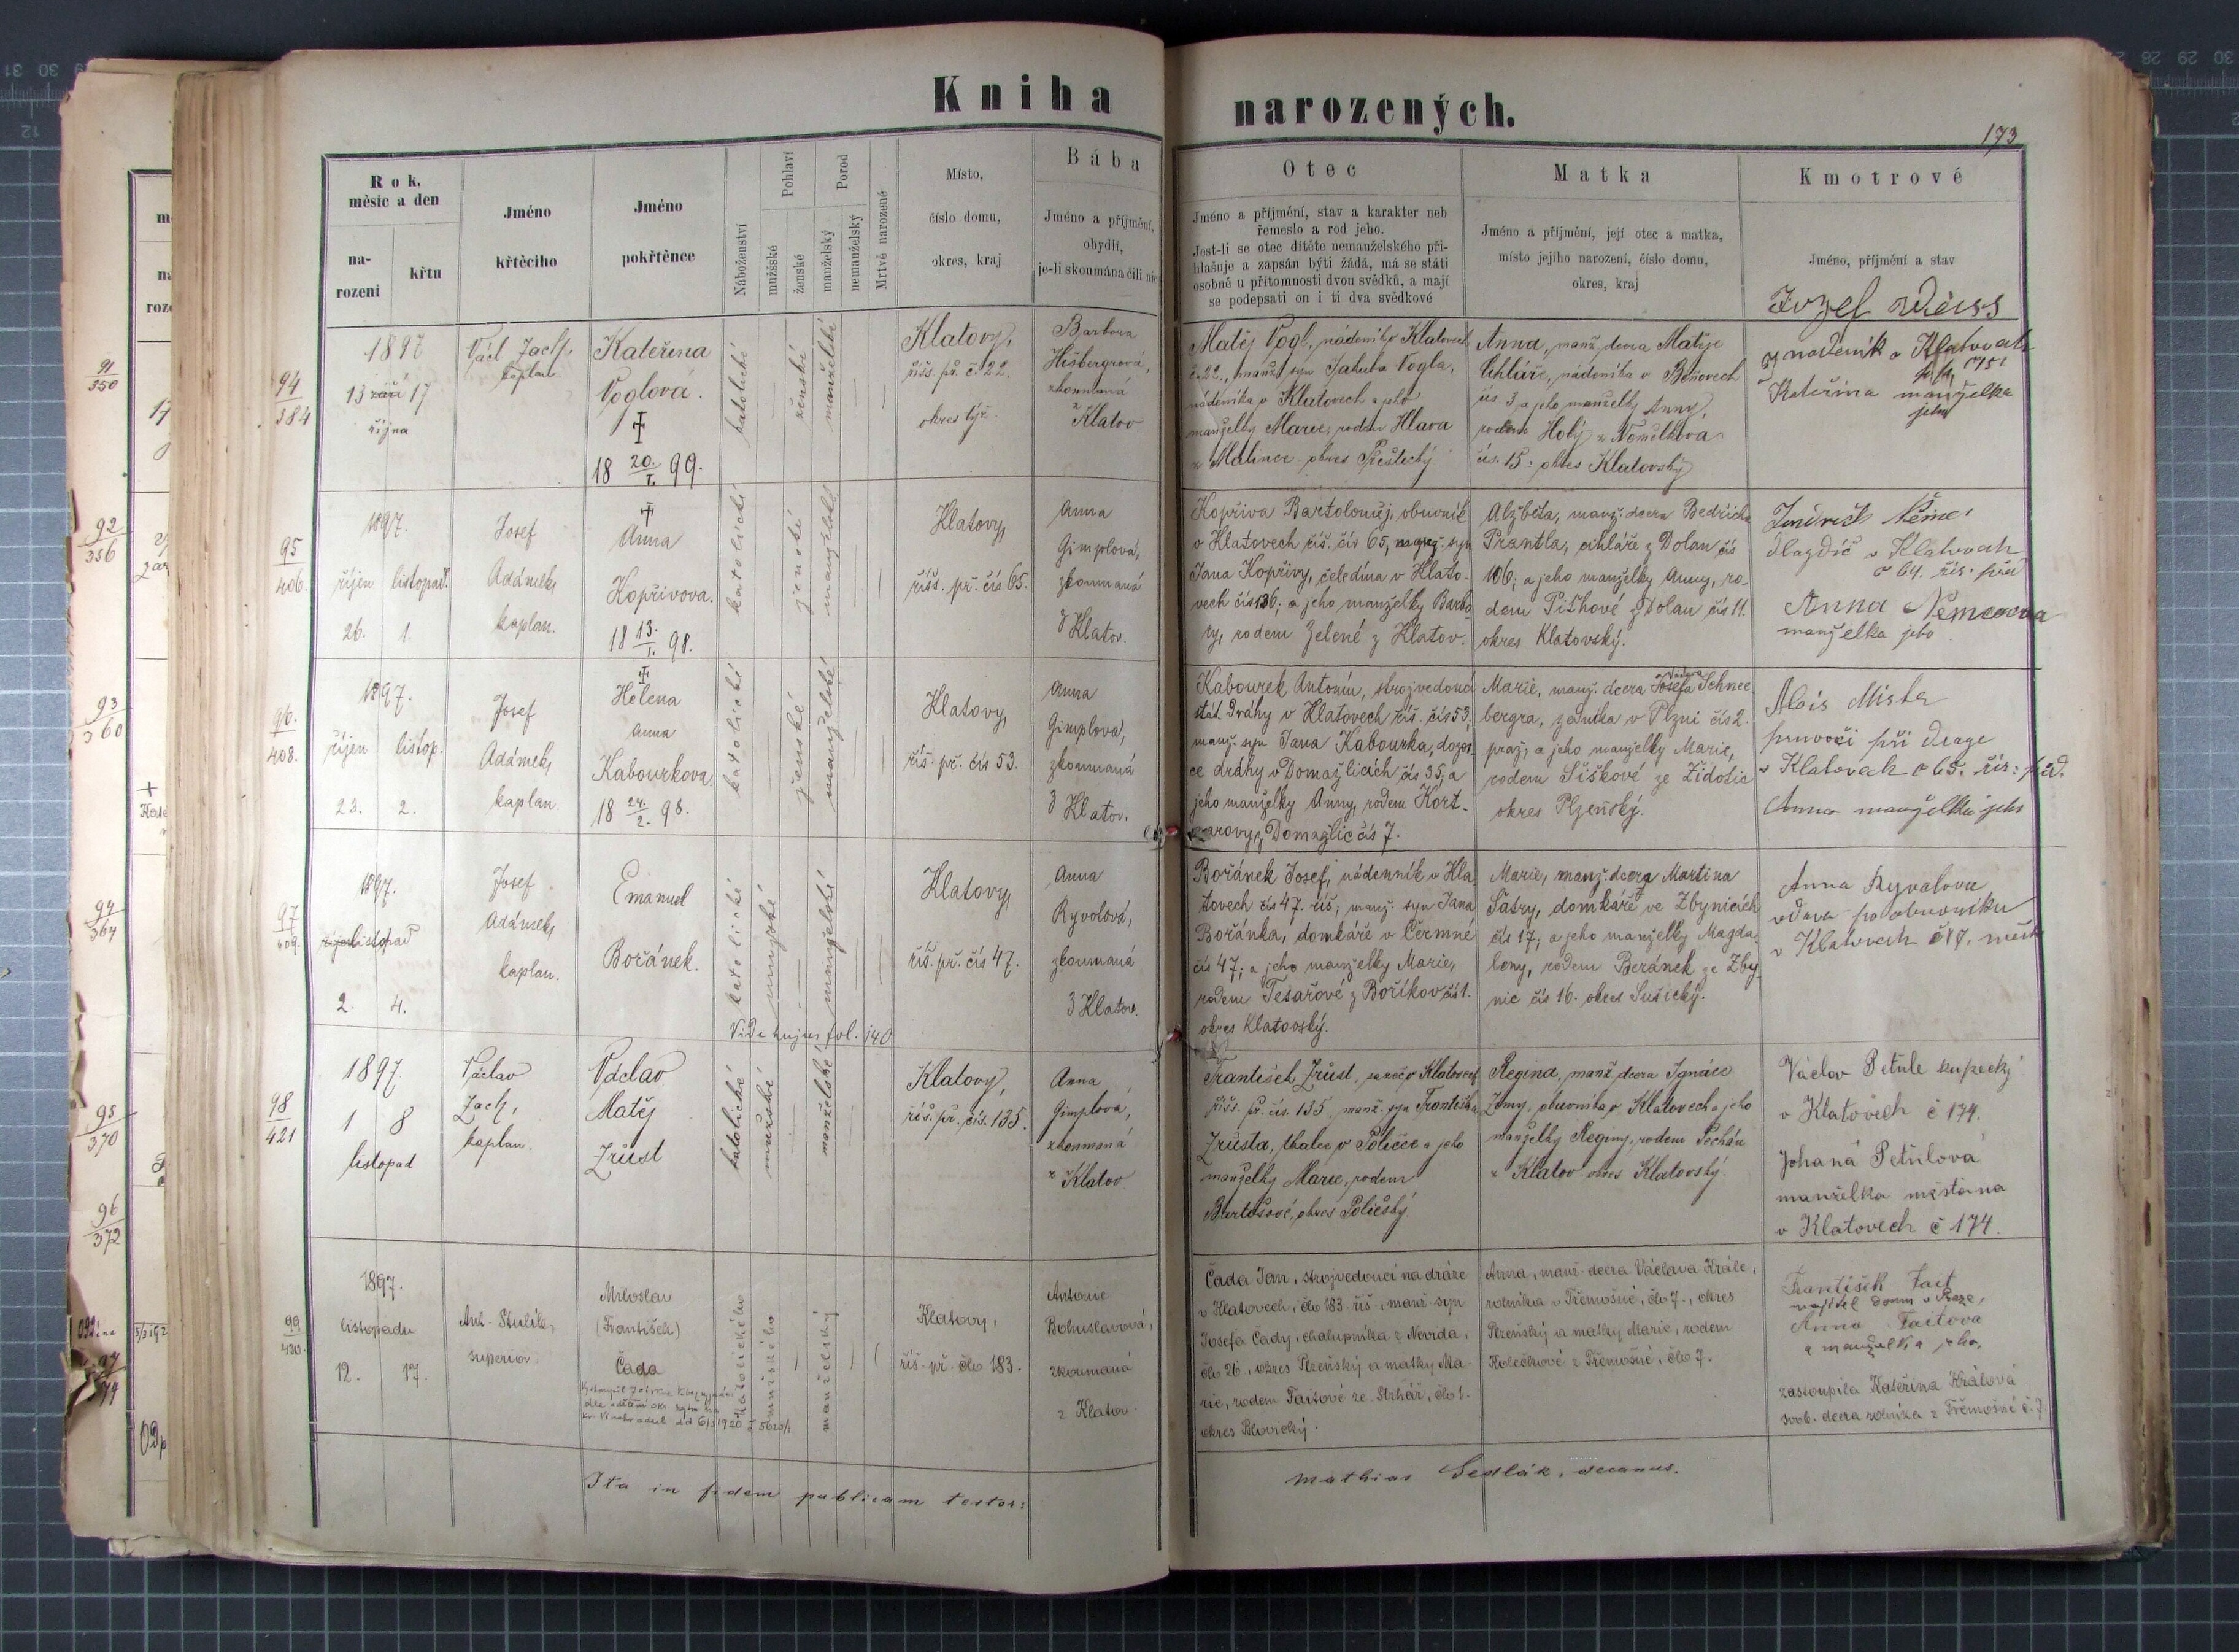 Kniha narozených.
173
Rok, měsíc a den
na-
rození
křtu
Jméno
křtěcího
Jméno
pokřtěnce
Náboženství
Pohlaví
mužské
ženské
Porod
manželský
nemanželský
Mrtvě narozené
Místo,
číslo domu,
okres, kraj
Bába
Jméno a příjmění,
obydlí,
je-li skoumána čili nic
Otec
Jméno a příjmění, stav a karakter neb
řemeslo a rod jeho.
Jest-li se otec dítěte nemanželského při-
hlašuje a zapsán býti žádá, má se státi
osobně u přítomnosti dvou svědků, a mají
se podepsati on i ti dva svědkové
Matka
Jméno a příjmění, její otec a matka,
místo jejího narození, číslo domu,
okres, kraj
Kmotrové
Jméno, příjmění a stav
94
384
1897
13 září 17
října
Václ. Zach,
kaplan.
Kateřina
Voglová.
18 20./I. 99.
katolické
ženské
manželské
Klatovy,
říšs. př. č. 22.
okres týž.
Barbora
zkoumaná
z Klatov
Matěj Vogl, nádeník v Klatovech
č. 22., manž. syn Jakuba Vogla,
nádeníka v Klatovech a jeho
manželky Marie, rodem Hlava
z Malince okres Přeštický
Anna, manž. dcera Matěje
čís 3, a jeho manželky Anny,
čís. 15. okres Klatovský
Jozef Weiss
nadenik v Klatovach
Kateřina manželka
jeho
95
406.
1897.
říjen listopad.
26. 1.
Josef
Adámek,
kaplan.
Anna
Kopřivova.
18 13./I. 98.
katolické
ženské
manželské
Klatovy,
říšs. př. čís 65.
Anna
Gimplová,
zkoumaná
z Klatov.
Kopřiva Bartoloměj, obuvník
v Klatovech říš. čís 65, manž. syn
Jana Kopřivy, čeledína v Klato-
vech čís 136; a jeho manželky Barbo-
ry, rodem Zelené z Klatov.
Alžběta, manž. dcera Bedřicha
Prantla, cihláře z Dolan čís
106; a jeho manželky Anny, ro-
dem Pišhové z Dolan čís 11.
okres Klatovský.
Jindřich Němec
dlaždič v Klatovach
č 64. řís. před
Anna Němcova
manželka jeho
96.
408.
1897.
říjen listop.
23. 2.
Josef
Adámek,
kaplan.
Helena
Anna
Kabourkova.
18 24./2. 98.
katolické
ženské
manželské
Klatovy,
říš. př. čís 53.
Anna
Gimplová,
zkoumaná
z Klatov.
Kabourek Antonín, strojvedoucí
stát. dráhy v Klatovech říš. čís 53,
manž. syn Jana Kabourka, dozor-
ce dráhy v Domažlicích čís 35, a
jeho manželky Anny, rodem Kort-
narovy z Domažlic čís 7.
Marie, manž. dcera Josefa Schnee-
bergra, zedníka v Plzni čís 2.
praž; a jeho manželky Marie,
rodem Šiškové ze Židovic
okres Plzeňský.
Alois Mista
pruvočí při draze
v Klatovách č 65. řís: před.
Anna manželka jeho
97
409.
1897.
listopad
2. 4.
Josef
Adámek,
kaplan.
Emanuel
Bořánek.
katolické
mužské
manželské
Vide hujus fol. 140
Klatovy,
říš. př. čís 47.
Anna
Ryvolová,
zkoumaná
z Klatov.
Bořánek Josef, nádenník v Kla-
tovech čís 47. říš; manž. syn Jana
Bořánka, domkáře v Čermné
čís 47; a jeho manželky Marie,
rodem Tesařové z Boříkov čís 1.
okres Klatovský.
Marie, manž. dcera Martina
Šatry, domkáře ve Zbynicích
čís 17; a jeho manželky Magda-
leny, rodem Beránek ze Zby-
nic čís 16. okres Sušický.
Anna Ryvalova
vdova po obuvníku
v Klatovech
98
421
1897.
1 8
listopad
Václav
Zach,
kaplan.
Václav
Matěj
Zrůst
katolické
mužské
manželské
Klatovy,
říš. př. čís. 135.
Anna
Gimplová,
zkoumaná
z Klatov
František Zrůst, v Klatovech
říšs. př. čís. 135 manž. syn Františka
Zrůsta, tkalce v Poličce a jeho
manželky Marie, rodem
Bartošové, okres Poličský.
Regina, manž. dcera Ignáce
Zemy, obuvníka v Klatovech a jeho
manželky Reginy, rodem Pechán
z Klatov okres Klatovský.
Václav Petule kupecký
v Klatovech č 174.
Johaná Petulová
manželka měšťana
v Klatovech č 174.
99
430.
1897.
listopadu
12. 17.
Ant. Stulík,
superior.
Miloslav
(František)
Čada
katolického
mužského
manželský
Klatovy,
říš. př. člo 183.
Antonie
Bohuslavová,
zkoumaná
z Klatov.
Čada Jan, strojvedoucí na dráze
v Klatovech, člo 183 říš., manž. syn
Josefa Čady, chalupníka z Nevida,
člo 26, okres Plzeňský a matky Ma-
rie, rodem Faitové ze Strhář, člo 1.
okres Blovický.
Anna, manž. dcera Václava Krále,
rolníka v Třemošné, člo 7., okres
Plzeňský a matky Marie, rodem
Kolečkové z Třemošné, člo 7.
František Fait
majitel domu v Praze,
Anna Faitova
a manželka jeho,
zastoupila Kateřina Králová
svob. dcera rolníka z Třemošné č. 7.
Ita in fidem publicam testor: Mathias Sedlák, decanus.
91
350
92
356
93
360
94
364
95
370
96
372